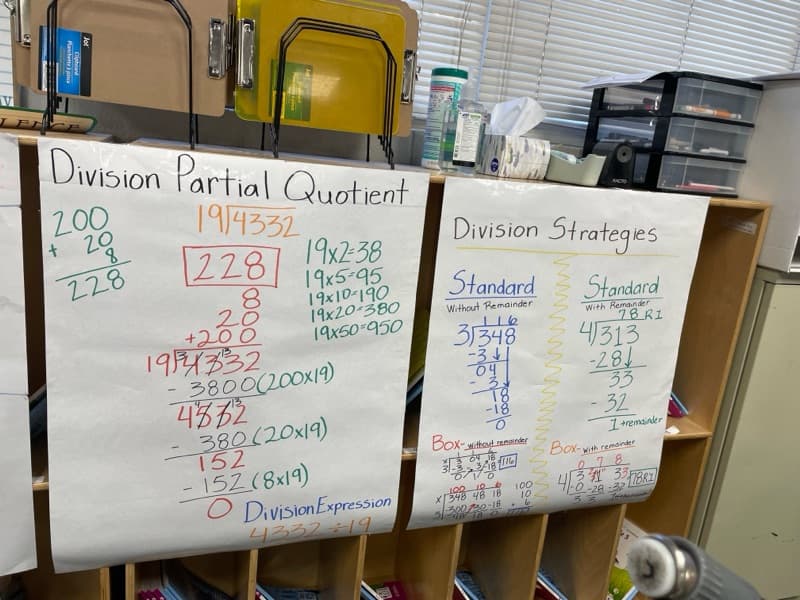 Division Partial Quotient
200
+ 20
8
228
19)4332
228
8
20
+200
19)4332
- 3800(200x19)
4532
- 380(20x19)
152
- 152(8x19)
0
19x2=38
19x5=95
19x10=190
19x20=380
19x50=950
Division Expression
4332 ÷ 19
Division Strategies
Standard
Without Remainder
116
3)348
-3
04
- 3
18
-18
0
Standard
With Remainder
78 R1
4)313
-28
33
- 32
1 ←remainder
Box- without remainder
116
100 10 6
348 48 18
100
10
Box- with remainder
0 7 8
78R1